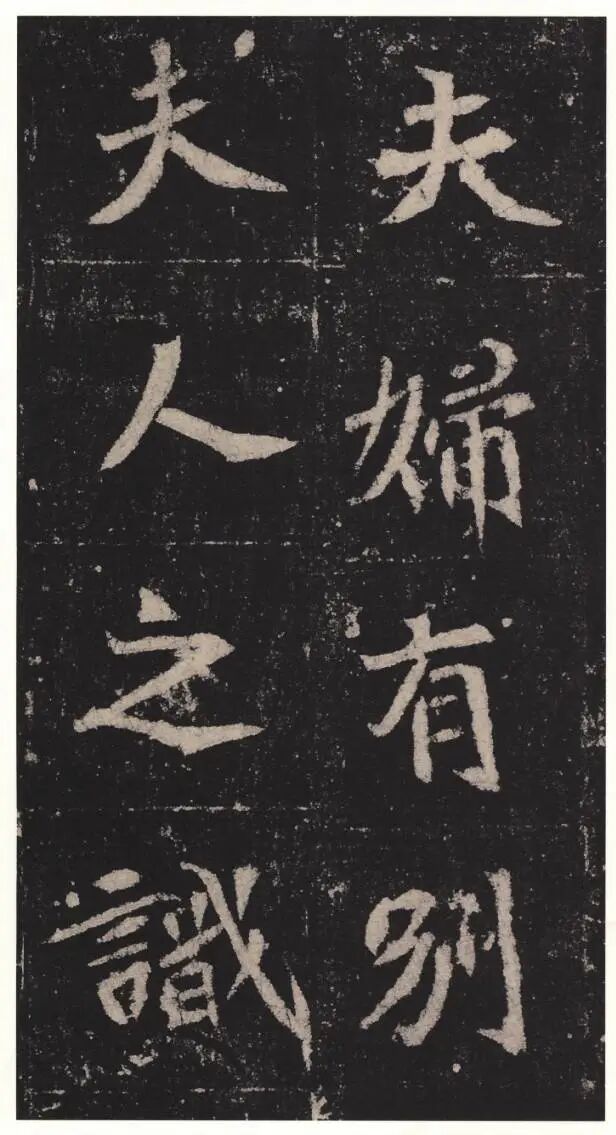 夫婦有別
夫人之識